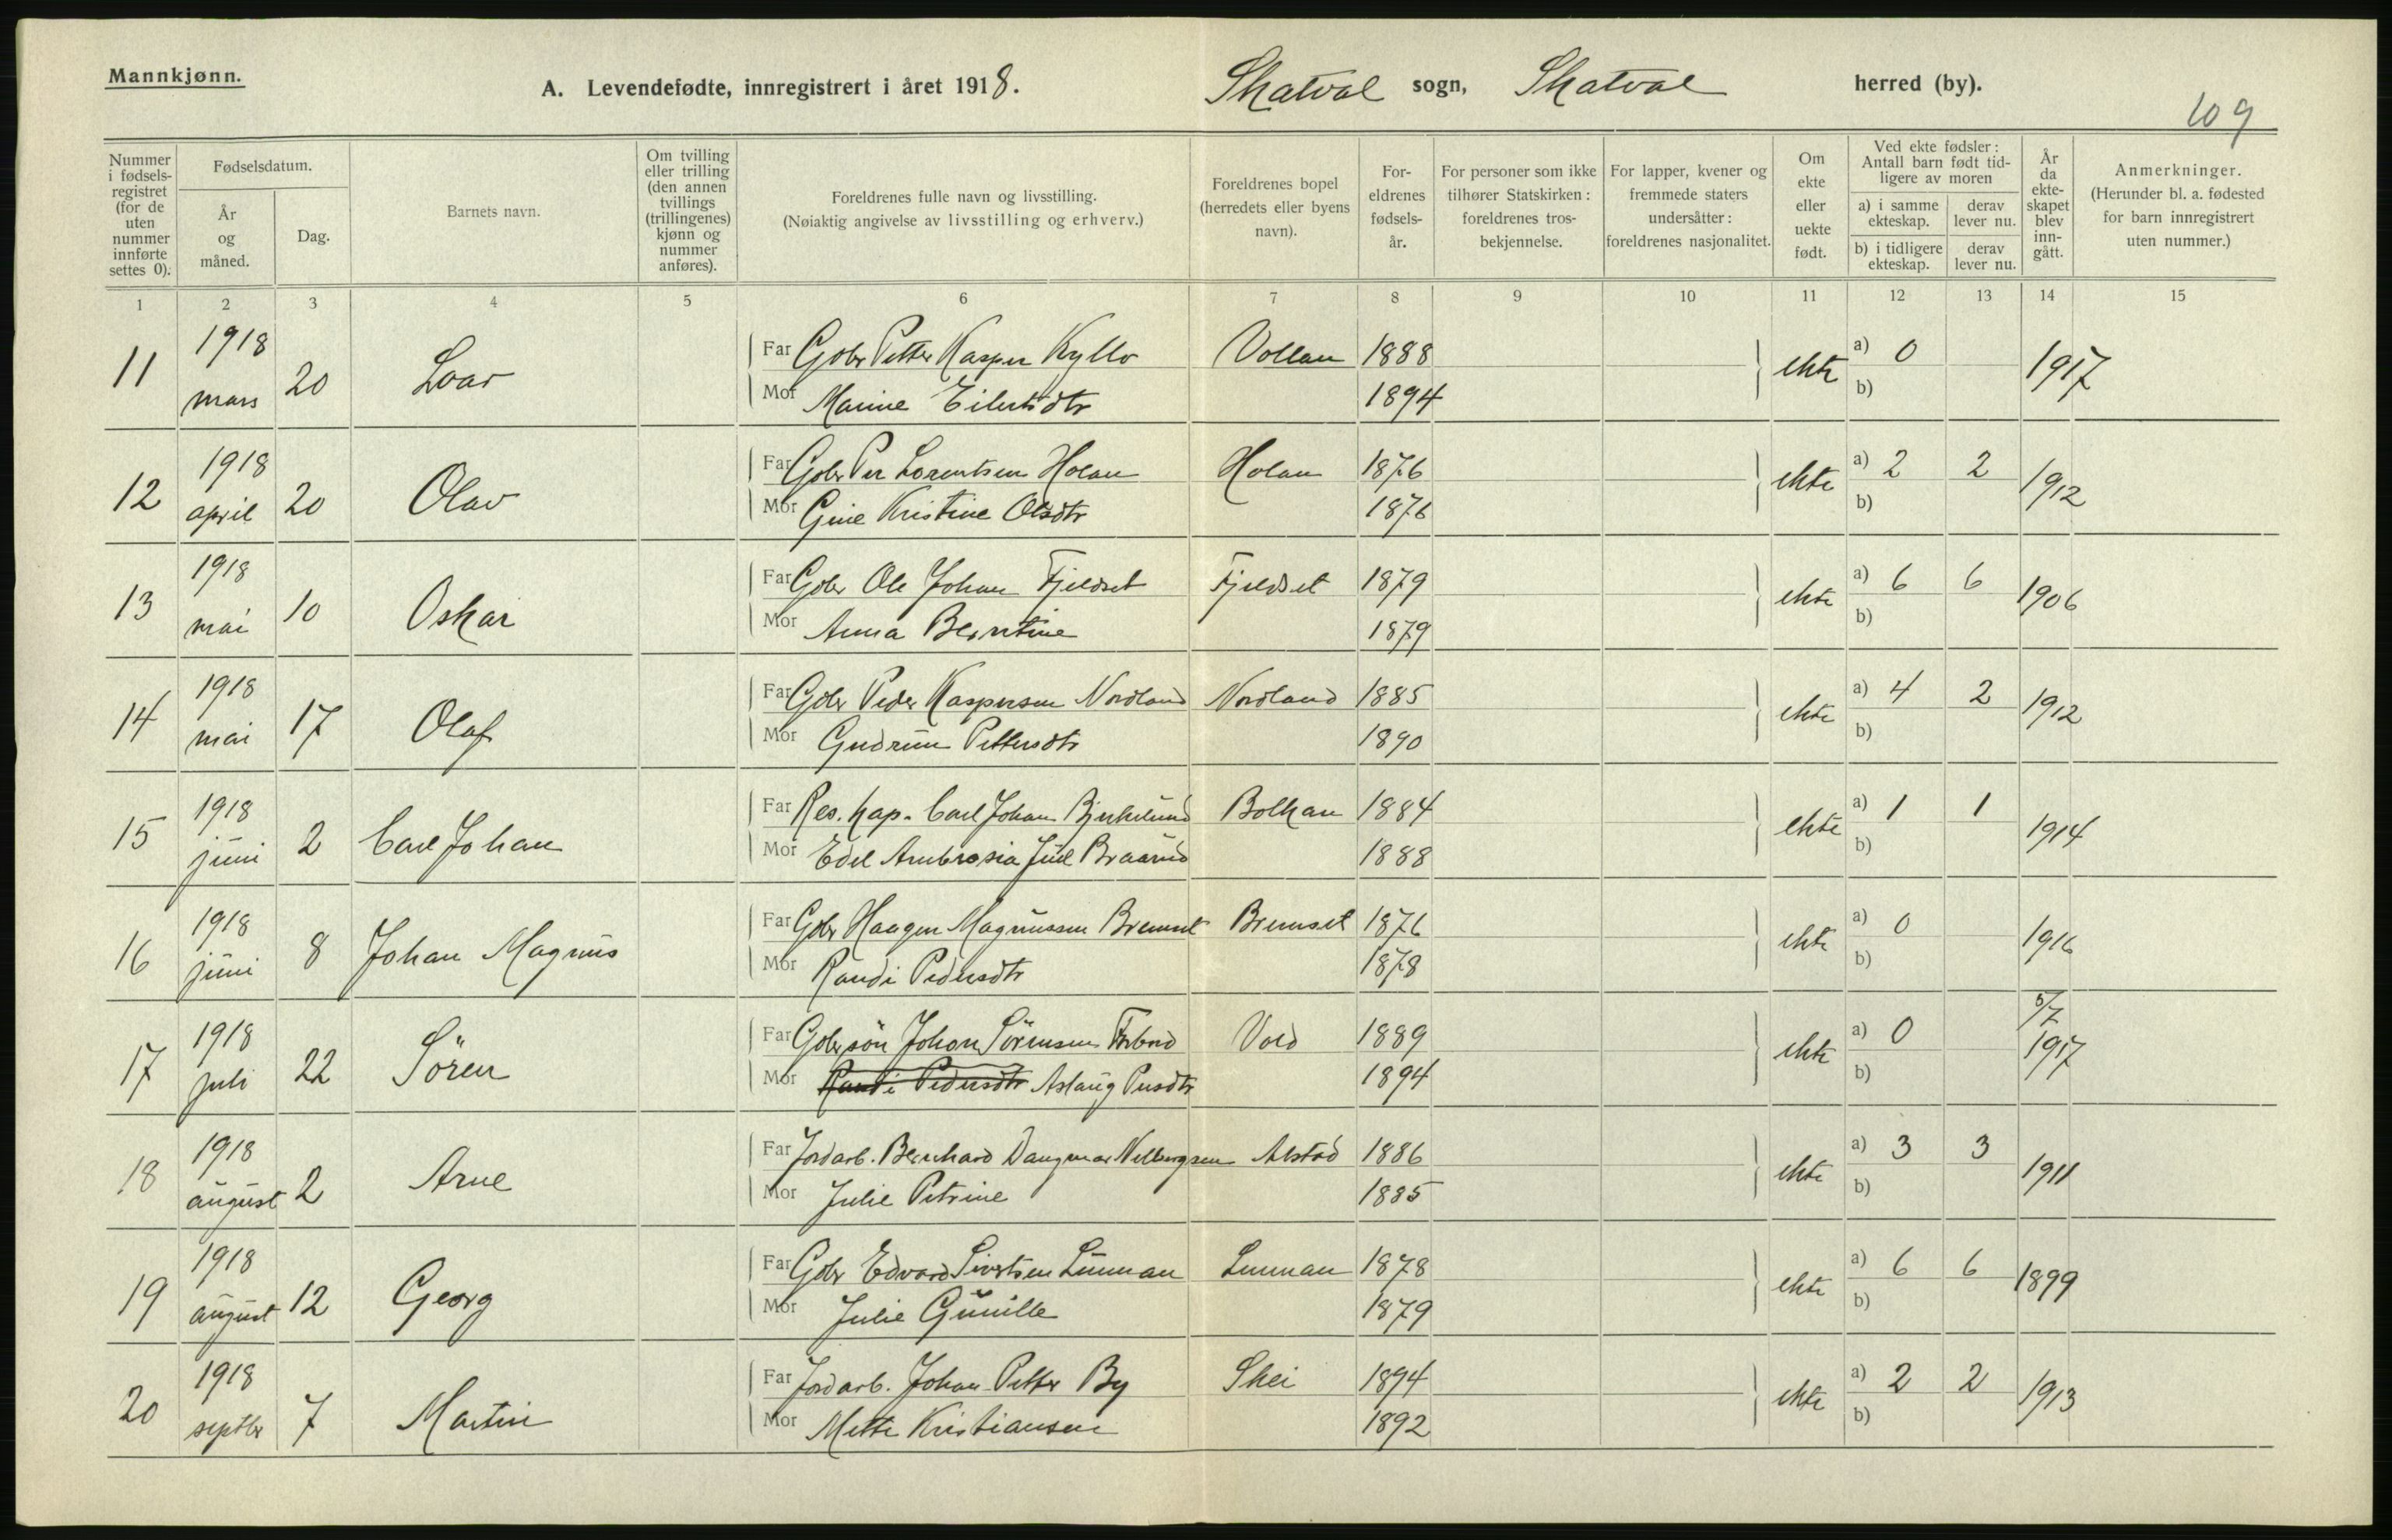 Mannkjønn.
A. Levendefødte, innregistrert i året 1918.
Skatval sogn, Skatval herred (by).
109
Nummer i fødsels-registret (for de uten nummer innførte settes 0).
Fødselsdatum.
År og måned.
Dag.
Barnets navn.
Om tvilling eller trilling (den annen tvillings (trillingenes) kjønn og nummer anføres).
Foreldrenes fulle navn og livsstilling.
(Nøiaktig angivelse av livsstilling og erhverv.)
Foreldrenes bopel (herredets eller byens navn).
For-eldrenes fødsels-år.
For personer som ikke tilhører Statskirken: foreldrenes tros-bekjennelse.
For lapper, kvener og fremmede staters undersåtter: foreldrenes nasjonalitet.
Om ekte eller uekte født.
Ved ekte fødsler: Antall barn født tid-ligere av moren
a) i samme ekteskap.
derav lever nu.
b) i tidligere ekteskap.
derav lever nu.
År da ekte-skapet blev inn-gått.
Anmerkninger.
(Herunder bl. a. fødested for barn innregistrert uten nummer.)
1 2 3 4 5 6 7 8 9 10 11 12 13 14 15
11 1918 mars 20
Far Gbr Petter Kasper Kyllo Vollan 1888 ekte a) 0 1917
Mor Marine Eilertsdtr 1894 b)
12 1918 april 20 Olav
Far Gbr Per Lorentsen Holan Holan 1876 ekte a) 2 2 1912
Mor Gine Kristine Olsdtr 1876 b)
13 1918 mai 10 Oskar
Far Gbr Ole Johan Fjeldset Fjeldset 1879 ekte a) 6 6 1906
Mor Anna Berntine 1879 b)
14 1918 mai 17 Olaf
Far Gbr Peder Kaspersen Nordland Nordland 1885 ekte a) 4 2 1912
Mor Gudrun Pettersdtr 1890 b)
15 1918 juni 2 Carl Johan
Far Res. kap. Carl Johan Bjerkelund Bolkan 1884 ekte a) 1 1 1914
Mor Edel Ambrosia Juel Braarud 1888 b)
16 1918 juni 8 Johan Magnus
Far Gbr Haagen Magnussen Bremset Bremset 1876 ekte a) 0 1916
Mor Randi Pedersdtr 1878 b)
17 1918 juli 22 Sören
Far Gbr sön Johan Sörensen Forbord Vold 1889 ekte a) 0 5/7 1917
Mor Randi Pedersdtr Aslaug Persdtr 1894 b)
18 1918 august 2 Arne
Far Jordarb. Bernhard Dangmar Alstad 1886 ekte a) 3 3 1911
Mor Julie Petrine 1885 b)
19 1918 august 12 Georg
Far Gbr Edvard Sivertsen Linman Linman 1878 ekte a) 6 6 1899
Mor Julie Gunille 1879 b)
20 1918 septbr 7 Martin
Far Jordarb. Johan Petter By Skei 1894 ekte a) 2 2 1913
Mor Mette Kristiansen 1892 b)